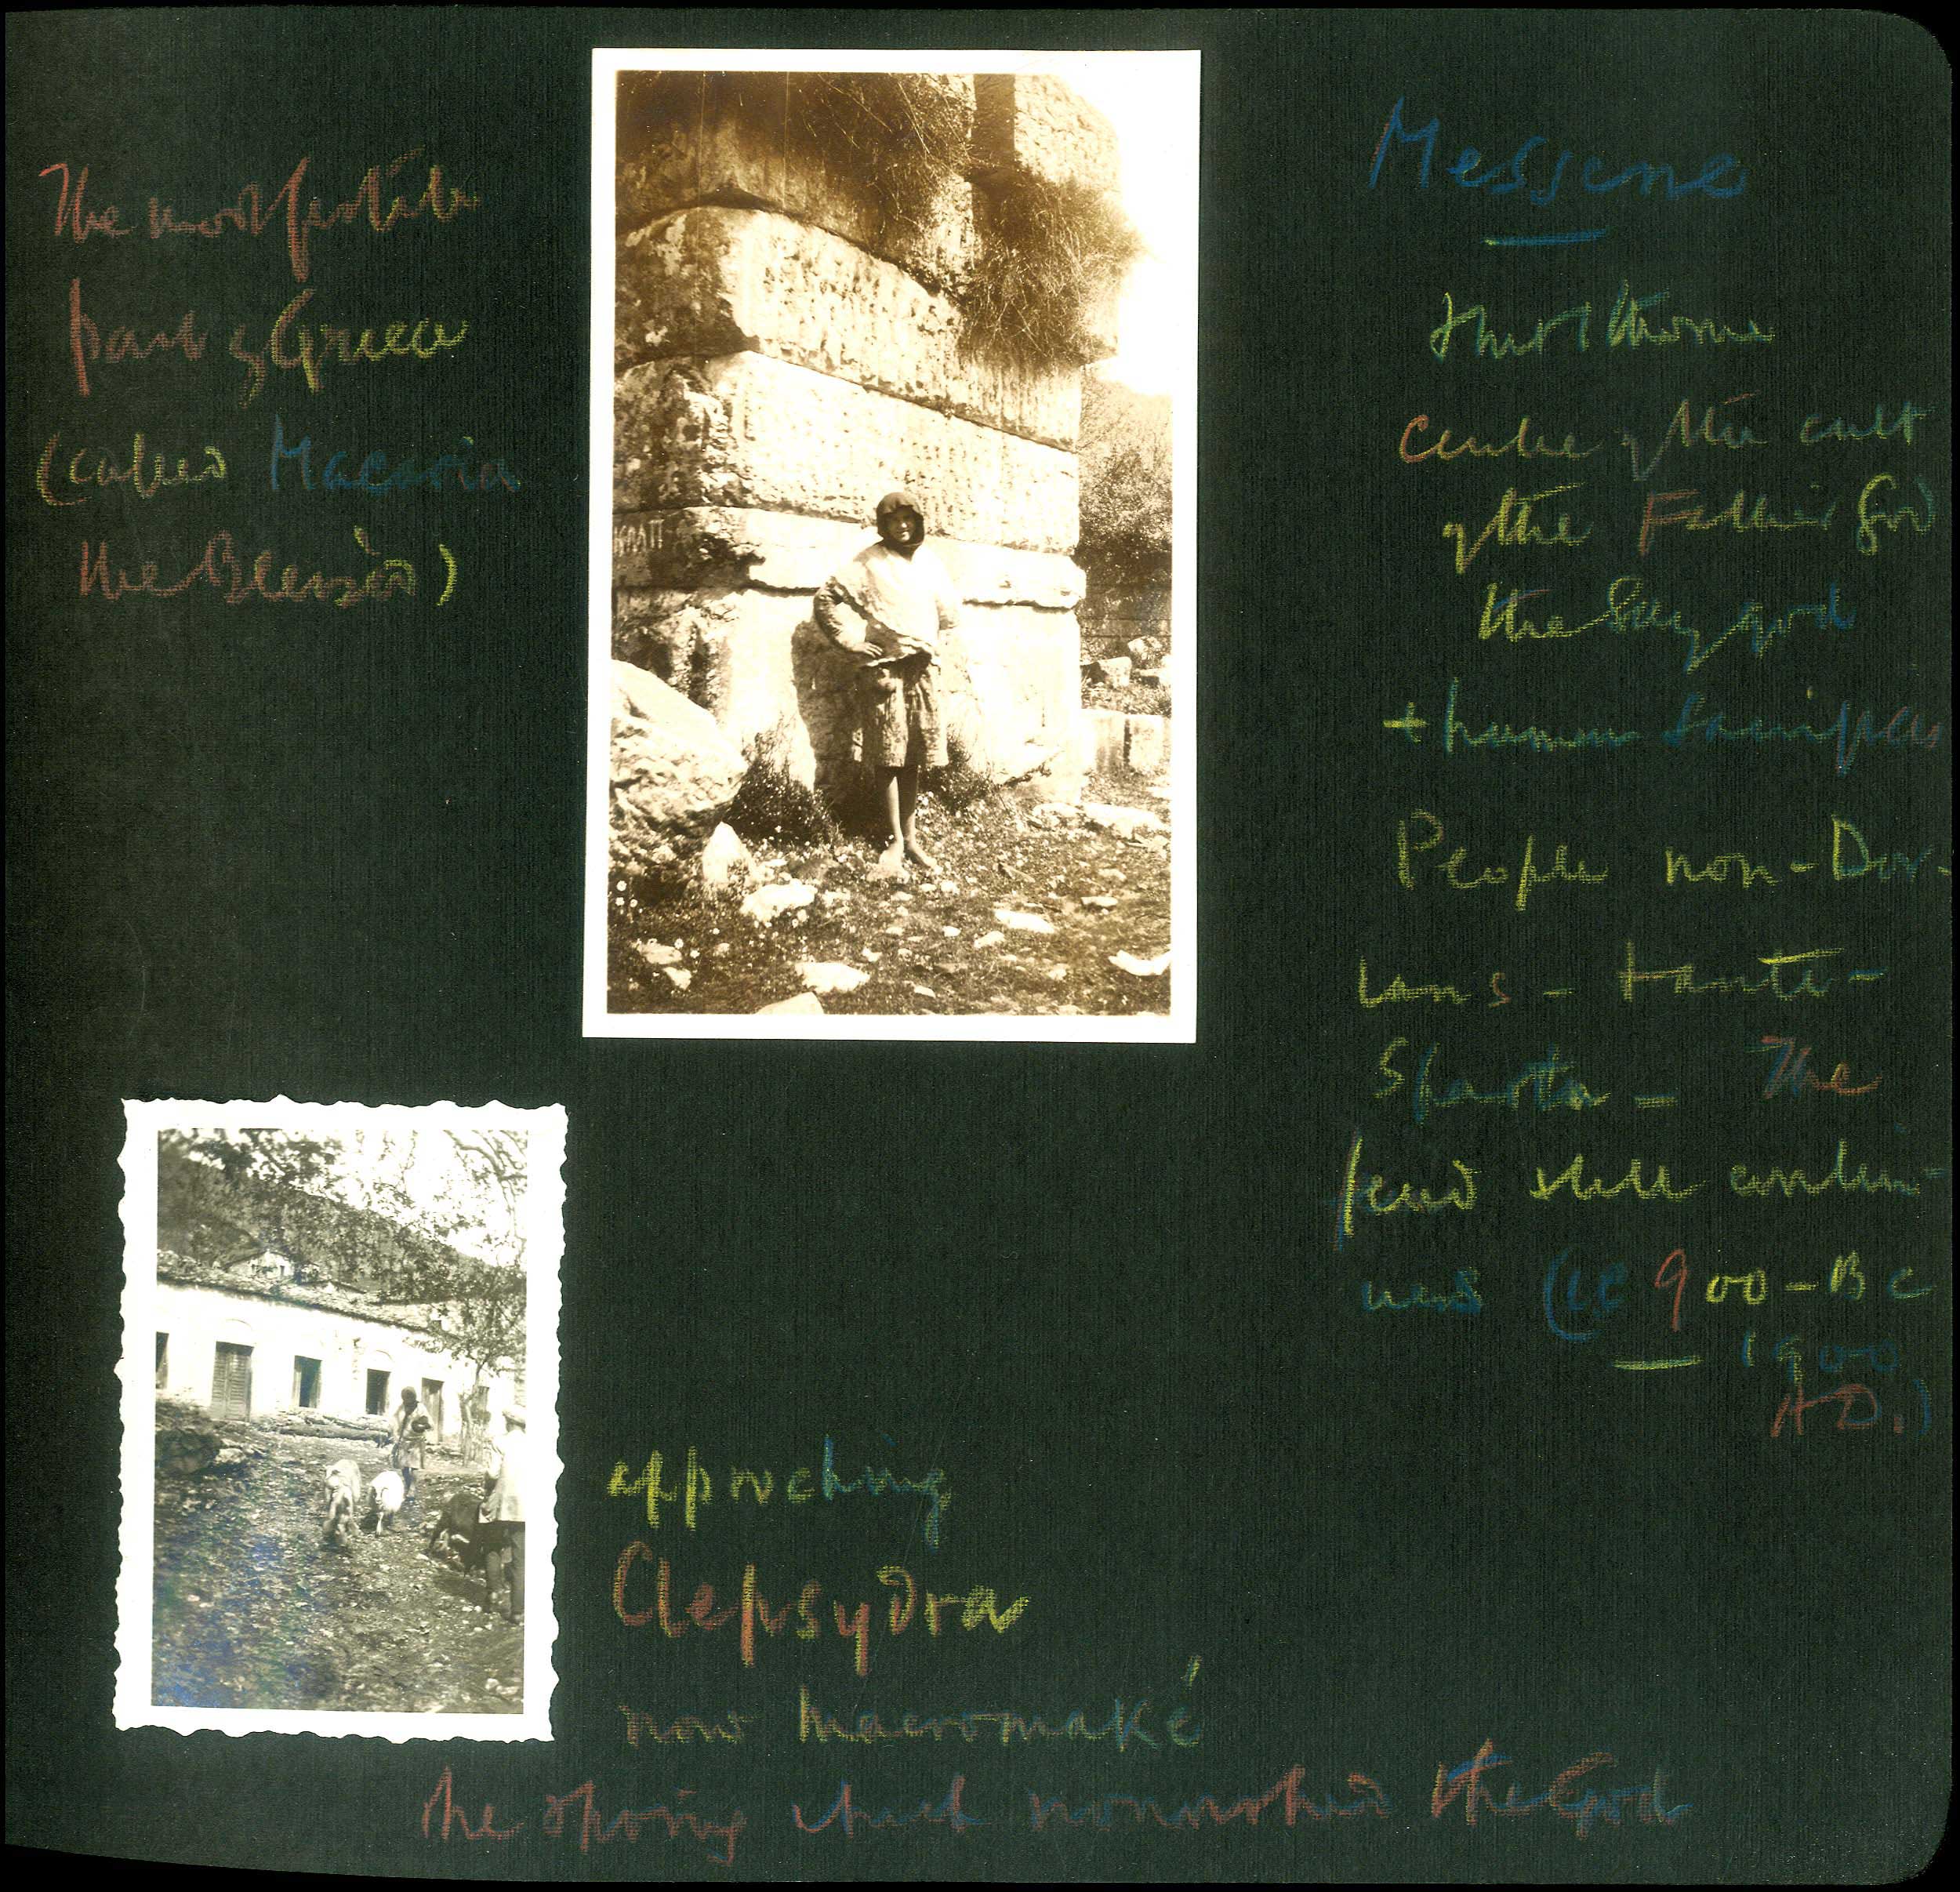 The most fertile
part of Greece
(called Macaria
the Blessed)
Messene
Ithome
Centre of the cult
of the Father God
the Sky god
+ human sacrifices
People non-Dor-
ians - + anti-
Sparta - The
feud still contin-
ues (ie 900 - BC
— 1900
AD.)
approching
Clepsydra
now Macromaké
the spring which nourished the God